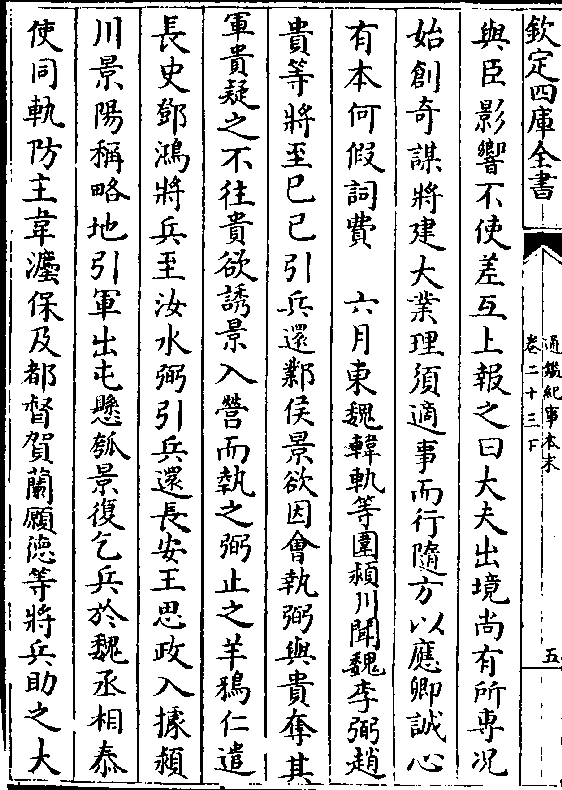 欽定四庫全書
通鑑紀事本末
卷二十三下
五
與臣影響不使差互上報之曰大夫出境尚有所專况
始創奇謀將建大業理須適事而行隨方以應卿誠心
有本何假詞費　六月東魏韓軌等圍潁川聞魏李弼趙
貴等將至己巳引兵還鄴侯景欲因會執弼與貴奪其
軍貴疑之不往貴欲誘景入營而執之弼止之羊鴉仁遣
長史鄧鴻將兵至汝水弼引兵還長安王思政入據潁
川景陽稱略地引軍出屯懸瓠景復乞兵於魏丞相泰
使同軌防主韋灋保及都督賀蘭願德等將兵助之大